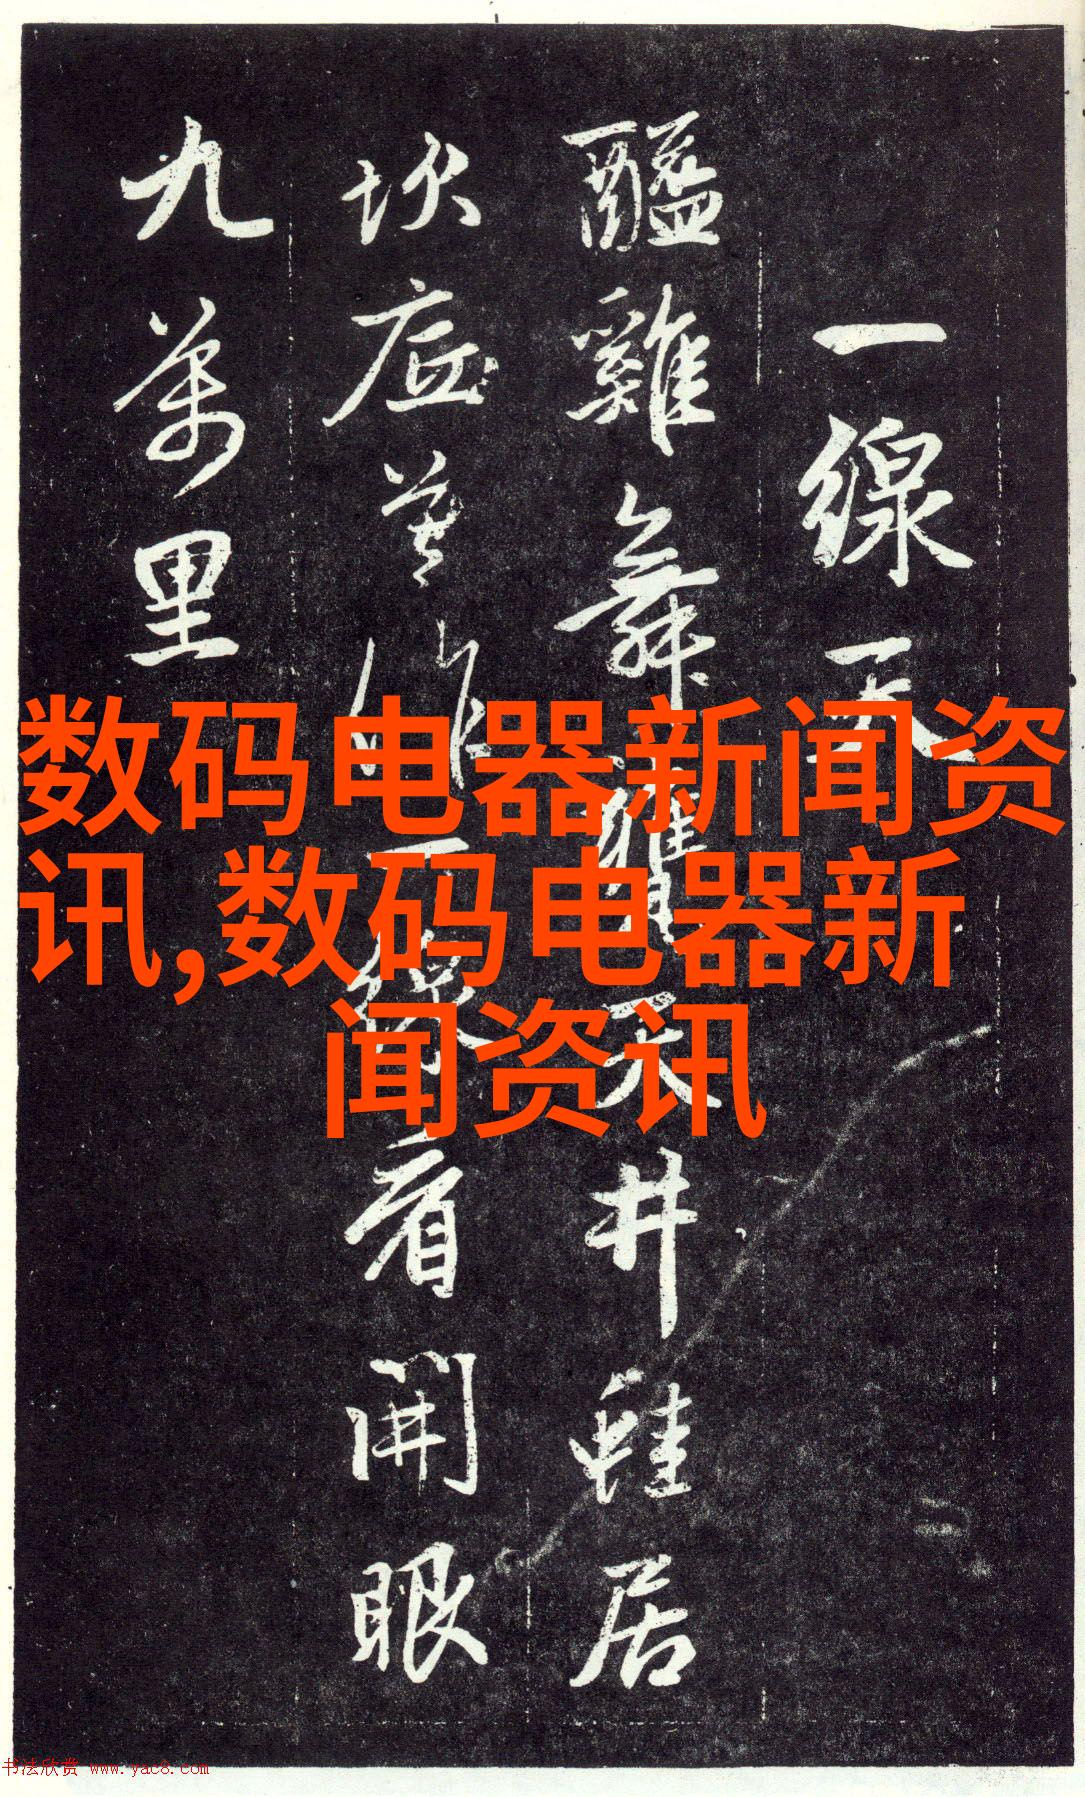 一線天
醯雞舞甕天井蛙居
坎底莫作一線看開眼
九萬里
数码电器新闻资
讯,数码电器新
闻资讯
书法欣赏 www.yac8.com